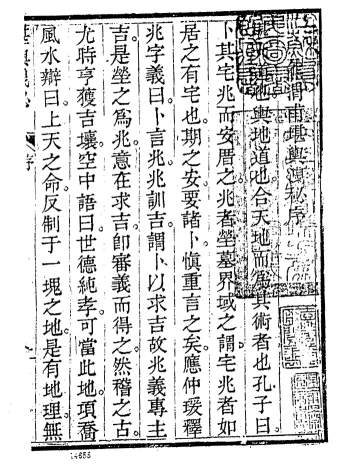 渭南堪輿泄秘序
地輿地道也合天地而為其術者也孔子曰
卜其宅兆而安厝之兆者塋墓界域之謂宅兆者如
居之有宅也期之安要諸卜慎重言之矣應仲瑗釋
兆字義曰卜言兆兆訓吉謂卜以求吉故兆義專主
吉是塋之為兆意在求吉卽審義而得之然稽之古
尤時亨獲吉壤空中語曰世德純孝可當此地項喬
風水辯曰上天之命反制于一塊之地是有地理無
序
14655